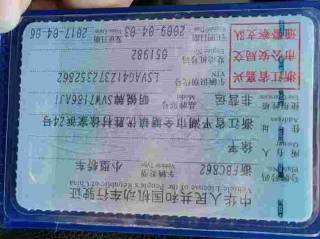 中华人民共和国机动车行驶证
Vehicle License of the People's Republic of China
号牌号码 浙FBC862 车辆类型 小型轿车
Vehicle Type
所有人 徐平
Owner
住址 浙江省平湖市
使用性质 非营运 品牌型号 明锐牌SVW7186AJI
Model
浙江省嘉兴
市公安局交
通警察支队
车辆识别代号
VIN
发动机号码 051982
注册日期 2009-04-03 发证日期 2017-04-06